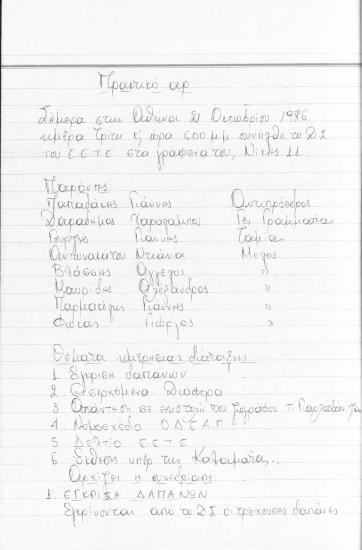 Πρακτικό αρ
Σήμερα στην Αθήνα 21 Οκτωβρίου 1986
ημέρα Τρίτη κ' ώρα 5.00 μμ συνήλθε το ΔΣ
του ΕΕΤΕ στα γραφεία του, Νίκης 11
Παρόντες
Παπαδάκης Γιάννης Αντιπρόεδρος
Χαράλαμπος Γεν. Γραμματέας
Γουρζής Γιάννης Ταμίας
Αντωνακάτου Ντιάνα Μέλος
Βλάσσης Άγγελος "
Μαυρίδης Αλέξανδρος "
Παρμακέλης Γιάννης "
Φωκάς Γιώργος "
Θέματα ημερησίας διάταξης
1 Έγκριση δαπανών
2 Εισερχόμενα Διάφορα
3 Απάντηση σε επιστολή του ζωγράφου Τ.
4 Νομοσχέδιο ΟΔΕΑΠ
5 Δελτίο ΕΕΤΕ
6 Έκθεση υπέρ της Καλαμάτας.
Αρχίζει η συνεδρίαση
1. ΕΓΚΡΙΣΗ ΔΑΠΑΝΩΝ
Εγκρίνονται από το ΔΣ οι τρέχουσες δαπάνες